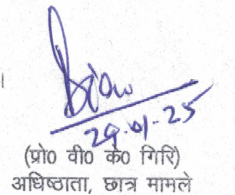 ।
29-01-25
(प्रो0 वी0 के0 गिरि)
अधिष्ठाता, छात्र मामले